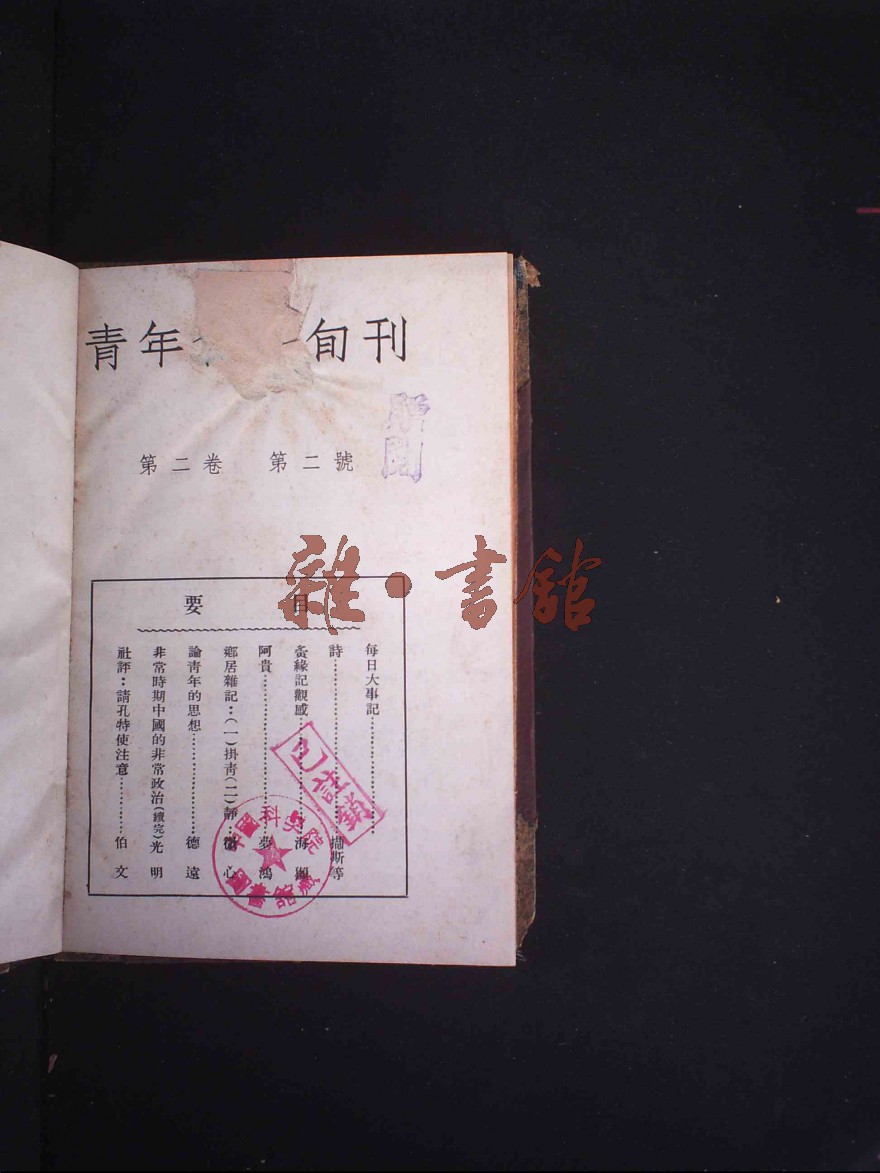 青年 旬刊
第二卷 第二號
雜·書館
要目
社評：請孔特使注意………伯文
非常時期中國的非常政治(續完)光明
論青年的思想…………德遠
鄉居雜記：(一)掛青(二)靜…心
阿貴…………夢鴻
緣記觀感…………海
詩…………等
每日大事記…………
中國科學院圖書館藏